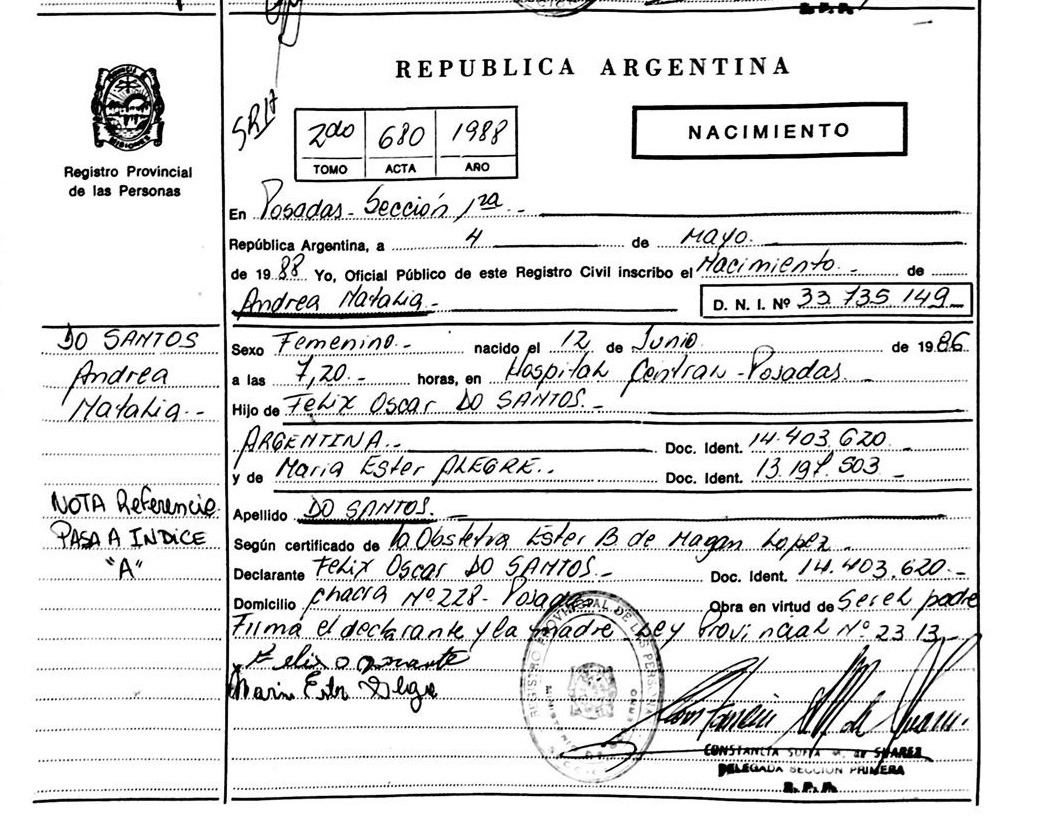 REPUBLICA ARGENTINA
Registro Provincial
de las Personas
2do 680 1988
TOMO ACTA AÑO
NACIMIENTO
En Posadas - Sección 1ra -
República Argentina, a 4 de Mayo.
de 1988 Yo, Oficial Público de este Registro Civil inscribo el Nacimiento - de
Andrea Natalia - D. N. I. Nº 33.735.149
DO SANTOS
Andrea
Natalia. -
Sexo Femenino. - nacido el 12 de Junio. de 1986
a las 7,20. - horas, en Hospital Central - Posadas.
Hijo de Felix Oscar DO SANTOS. -
ARGENTINA. - Doc. Ident. 14.403.620 -
y de Maria Ester ALEGRE. - Doc. Ident. 13.197.503 -
NOTA Referencia
PASA A INDICE
"A"
Apellido DO SANTOS. -
Según certificado de la Obstetra Ester B de Magan Lopez -
Declarante Felix Oscar DO SANTOS. - Doc. Ident. 14.403.620. -
Domicilio chacra Nº 228 - Posadas Obra en virtud de Ser el padre
Firma el declarante y la madre Ley Provincial Nº 2313 -
CONSTANCIA de SUAREZ
DELEGADA SECCION PRIMERA
R. P. P.